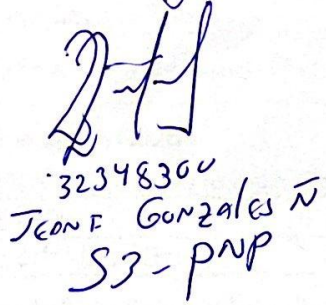 32348300
JEONF GONZALES Ñ
S3 - PNP